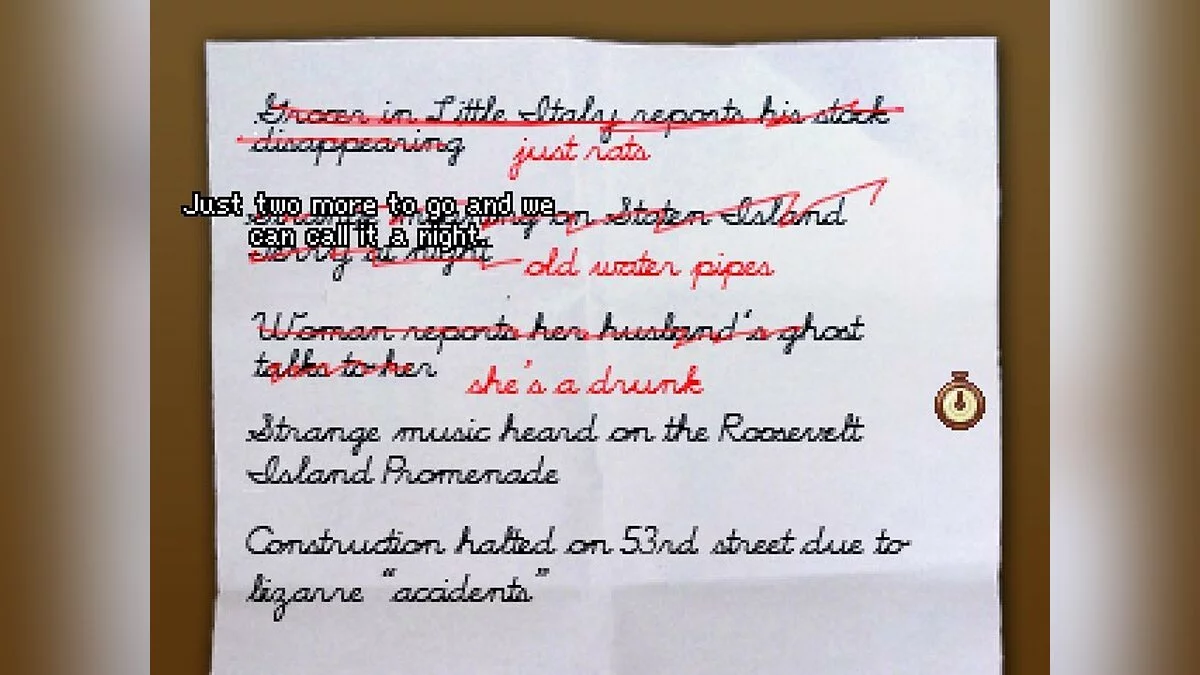 Grocer in Little Italy reports his stock
disappearing just rats
Just two more to go and we
can call it a night.
on Staten Island
at night old water pipes
Woman reports her husband's ghost
talks to her she's a drunk
Strange music heard on the Roosevelt
Island Promenade
Construction halted on 53rd street due to
bizarre “accidents”